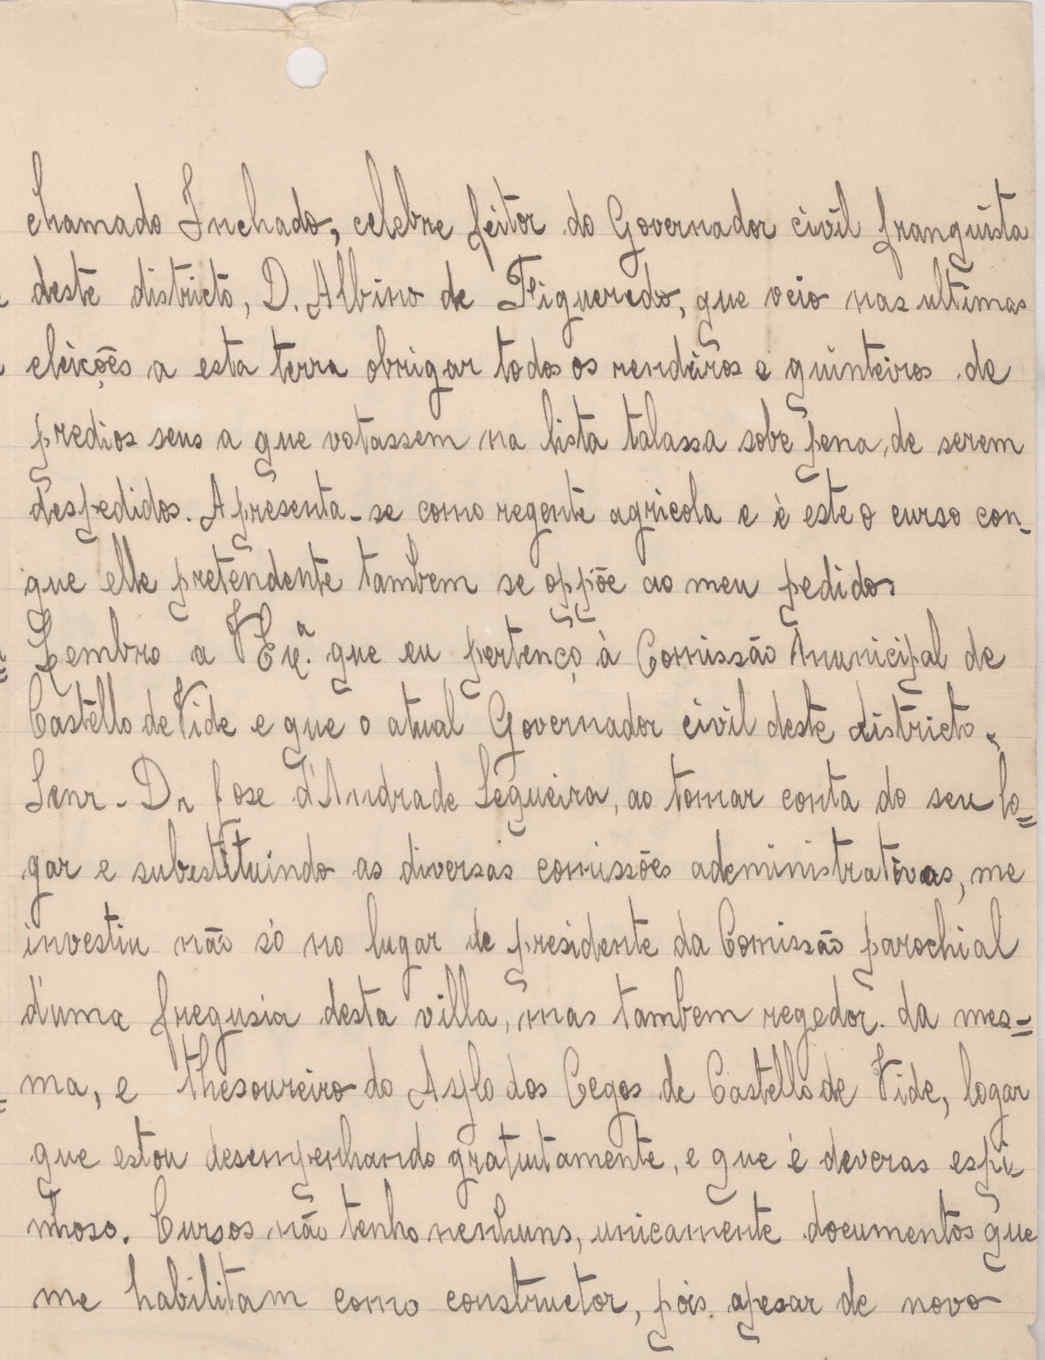 chamado Inchado, celebre feitor do Governador civil franquista
deste districto, D. Albino de Figueredo, que veio nas ultimas
eleições a esta terra obrigar todos os rendeiros e quinteiros de
predios seus a que votassem na lista talassa sobe pena, de serem
despedidos. Apresenta-se como regente agricola e é este o curso con-
que elle pretendente tambem se oppõe ao meu pedido.
Lembro a V Exª. que eu pertenço à Comissão Municipal de
Castello de Vide e que o atual Governador civil deste districto.
Senr. Dr Jose d'Andrade Sequeira, ao tomar conta do seu lo=
gar e substituindo as diversas comissões administrativas, me
investiu não só no lugar de presidente da Comissão parochial
d'uma fregusia desta villa, mas tambem regedor da mes=
ma, e thesoureiro do Asylo dos Cegos de Castello de Vide, logar
que estou desempenhando gratuitamente, e que é deveras espi-
nhoso. Cursos não tenho nenhuns, unicamente documentos que
me habilitam como constructor, pois. apesar de novo